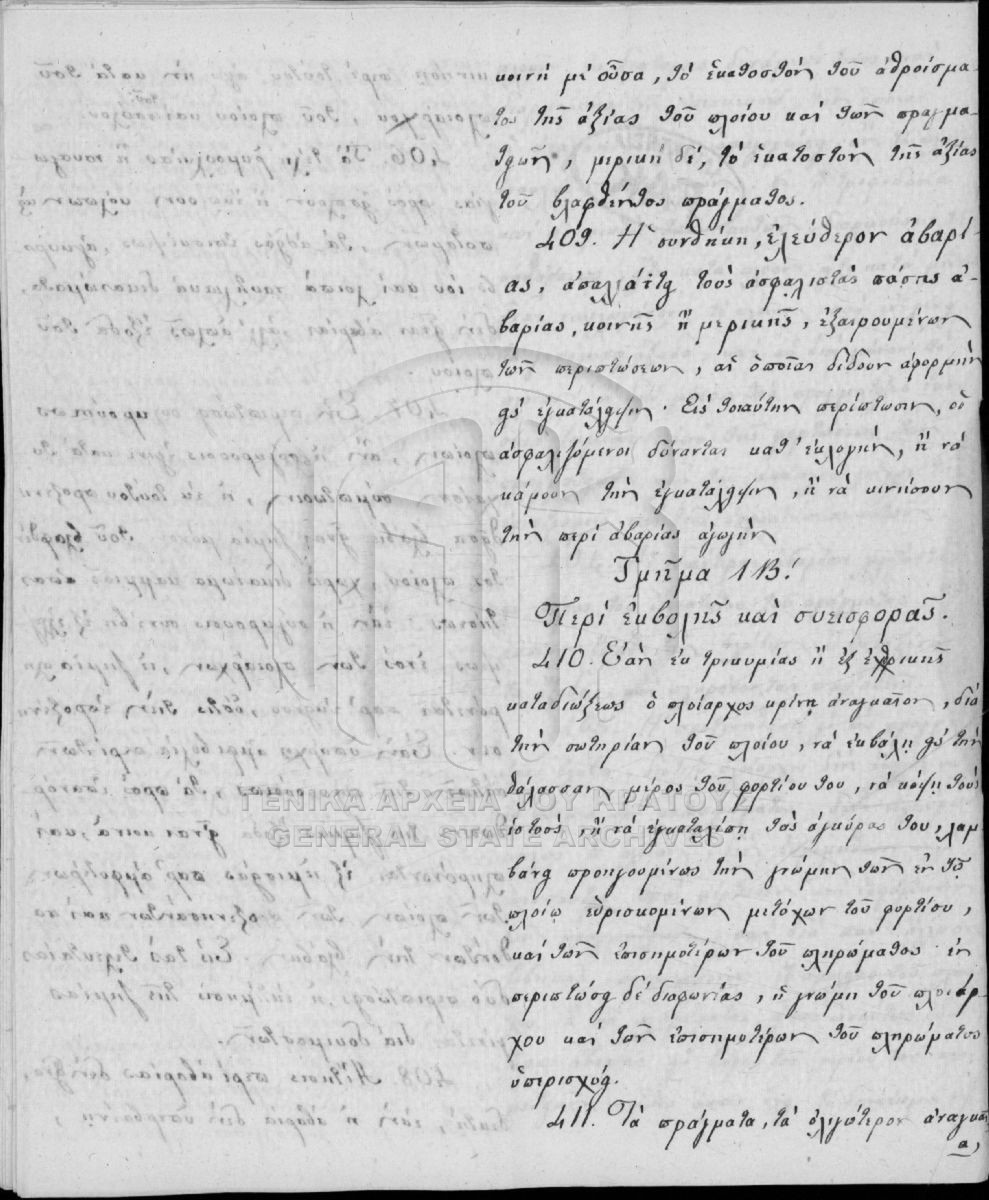 κοινὴ μὲ οὖσα, τὸ ἑκατοστὸν τοῦ ἀθροίσμα-
τος τῆς ἀξίας τοῦ πλοίου καὶ τῶν πραγμα-
τῶν, μερικὴ δὲ, τὸ ἑκατοστὸν τῆς ἀξίας
τοῦ βλαφθέντος πράγματος.
409. Ἡ συνθήκη, ἐλεύθερον ἀβαρί-
ας, ἀπαλλάττει τοὺς ἀσφαλιστὰς πάσης ἀ-
βαρίας, κοινῆς ἢ μερικῆς, ἐξαιρουμένων
τῶν περιστάσεων, αἱ ὁποῖαι δίδουν ἀφορμὴν
εἰς ἐγκατάλειψιν. Εἰς τοιαύτην περίστασιν, οἱ
ἀσφαλιζόμενοι δύνανται κατ' ἐκλογὴν, ἢ νὰ
κάμουν τὴν ἐγκατάλειψιν, ἢ νὰ κινήσουν
τὴν περὶ ἀβαρίας ἀγωγήν
Τμῆμα ΙΒ!
Περὶ ἐκβολῆς καὶ συεισφορᾶς.
410. Ἐὰν ἐκ τρικυμίας ἢ ἐξ ἐχθρικῆς
καταδιώξεως ὁ πλοίαρχος κρίνῃ ἀναγκαῖον, διὰ
τὴν σωτηρίαν τοῦ πλοίου, νὰ ἐκβάλῃ εἰς τὴν
θάλασσαν μέρος τοῦ φορτίου του, νὰ κόψῃ τοὺς
ἱστοὺς, ἢ νὰ ἐγκαταλίπῃ τὰς ἀγκύρας του, λαμ
βάνει προηγουμένως τὴν γνώμην τῶν ἐν τῷ
πλοίῳ εὑρισκομένων μετόχων τοῦ φορτίου,
καὶ τῶν ἐπισημοτέρων τοῦ πληρώματος ἐν
περιπτώσει δὲ διαφωνίας, ἡ γνώμη τοῦ πλοιάρ-
χου καὶ τῶν ἐπισημοτέρων τοῦ πληρώματος
ὑπερισχύει.
411. Τὰ πράγματα, τὰ ὀλιγώτερον ἀναγκαῖ
α,
ΓΕΝΙΚΑ ΑΡΧΕΙΑ ΤΟΥ ΚΡΑΤΟΥΣ
GENERAL STATE ARCHIVES